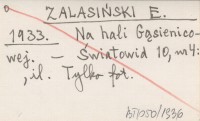 ZALASIŃSKI E.
1933. Na hali Gąsienico-
wej. — Światowid 10, nr 4:
, il. Tylko fot.